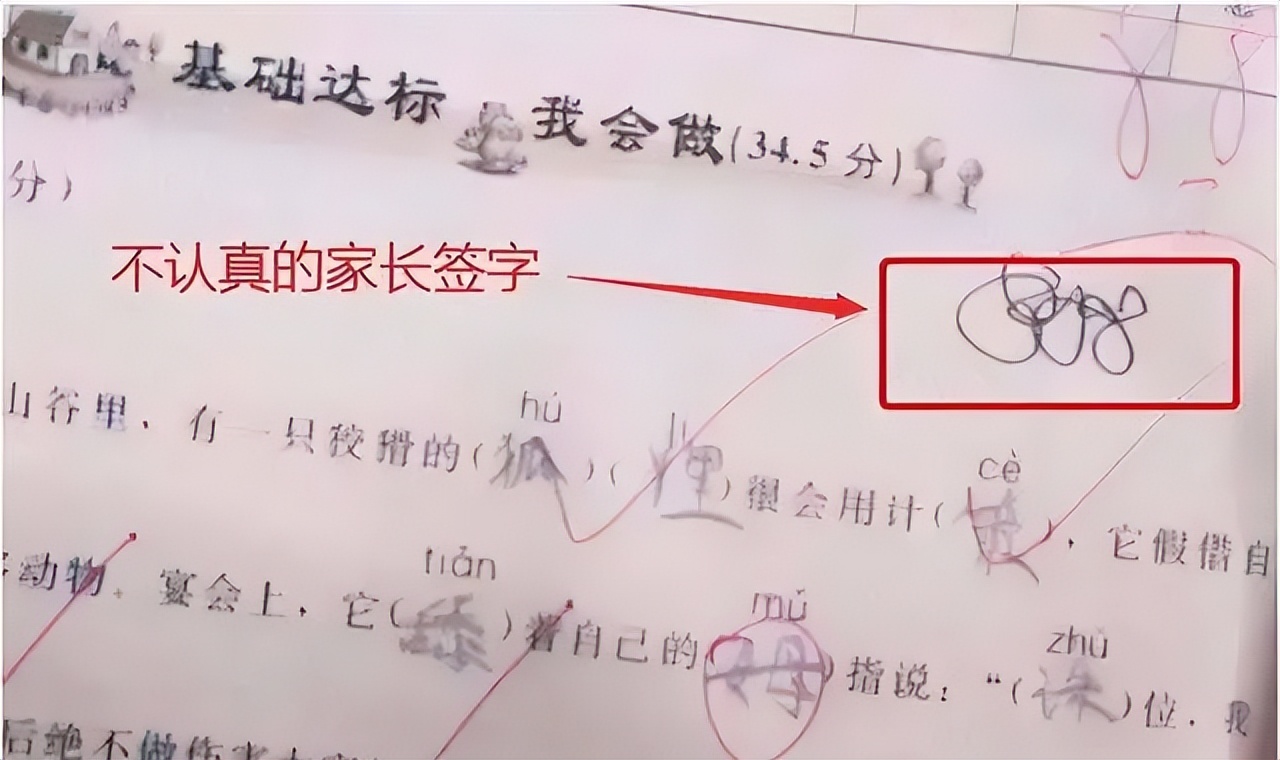 基础达标 我会做(34.5分)
分)
不认真的家长签字
hú cè
山谷里，有一只狡猾的(狐)(狸)很会用计( )，它假借自
tiǎn mǔ zhū
动物。宴会上，它( )着自己的( )指说：“( )位，我
后绝不做伤害大